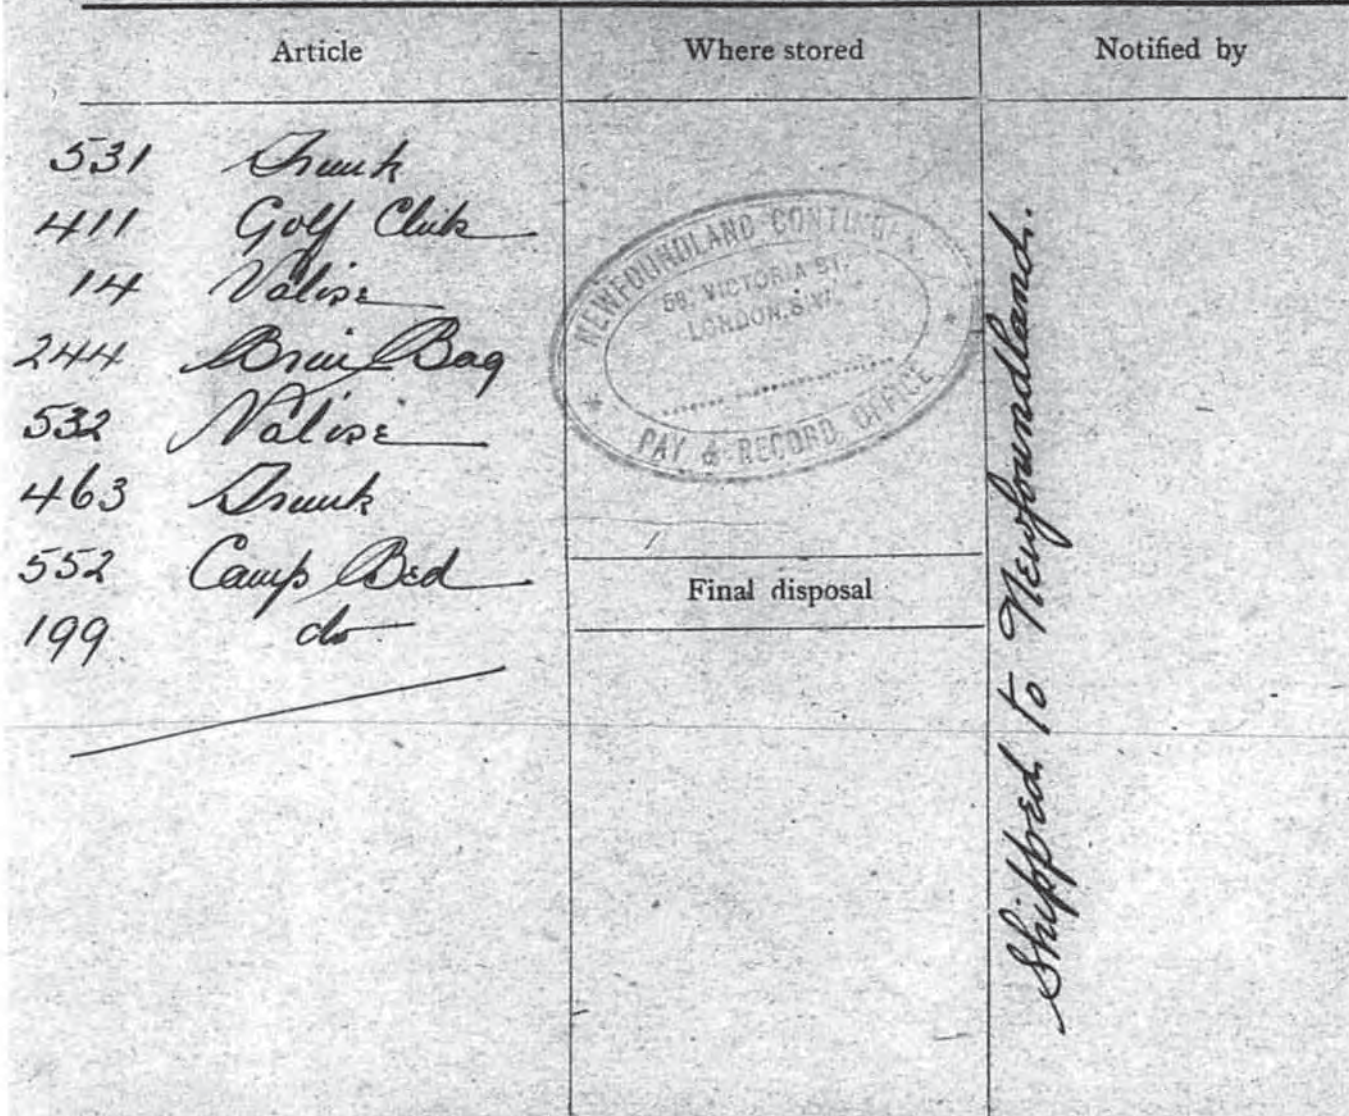 Article
Where stored
Notified by
531 Trunk
411 Golf Club
14 Valise
244 Bag
532 Valise
463 Trunk
552 Camp Bed
199 do
NEWFOUNDLAND CONTINGEN
58, VICTORIA ST.
LONDON, S.W.
PAY & RECORD OFFICE
Final disposal
Shipped to Newfoundland.